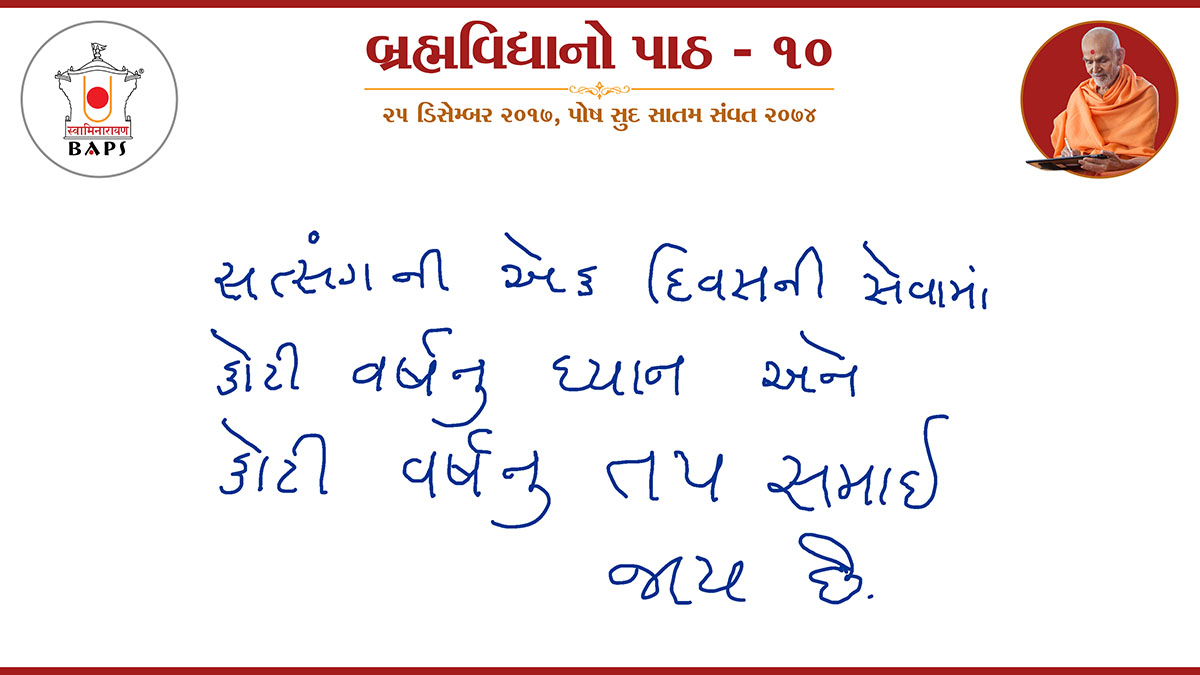 બ્રહ્મવિદ્યાનો પાઠ - ૧૦
૨૫ ડિસેમ્બર ૨૦૧૭, પોષ સુદ સાતમ સંવત ૨૦૭૪
स्वामिनारायण
®
BAPS
સત્સંગની એક દિવસની સેવામાં
કોટી વર્ષનુ ધ્યાન અને
કોટી વર્ષનુ તપ સમાઈ
જાય છે.